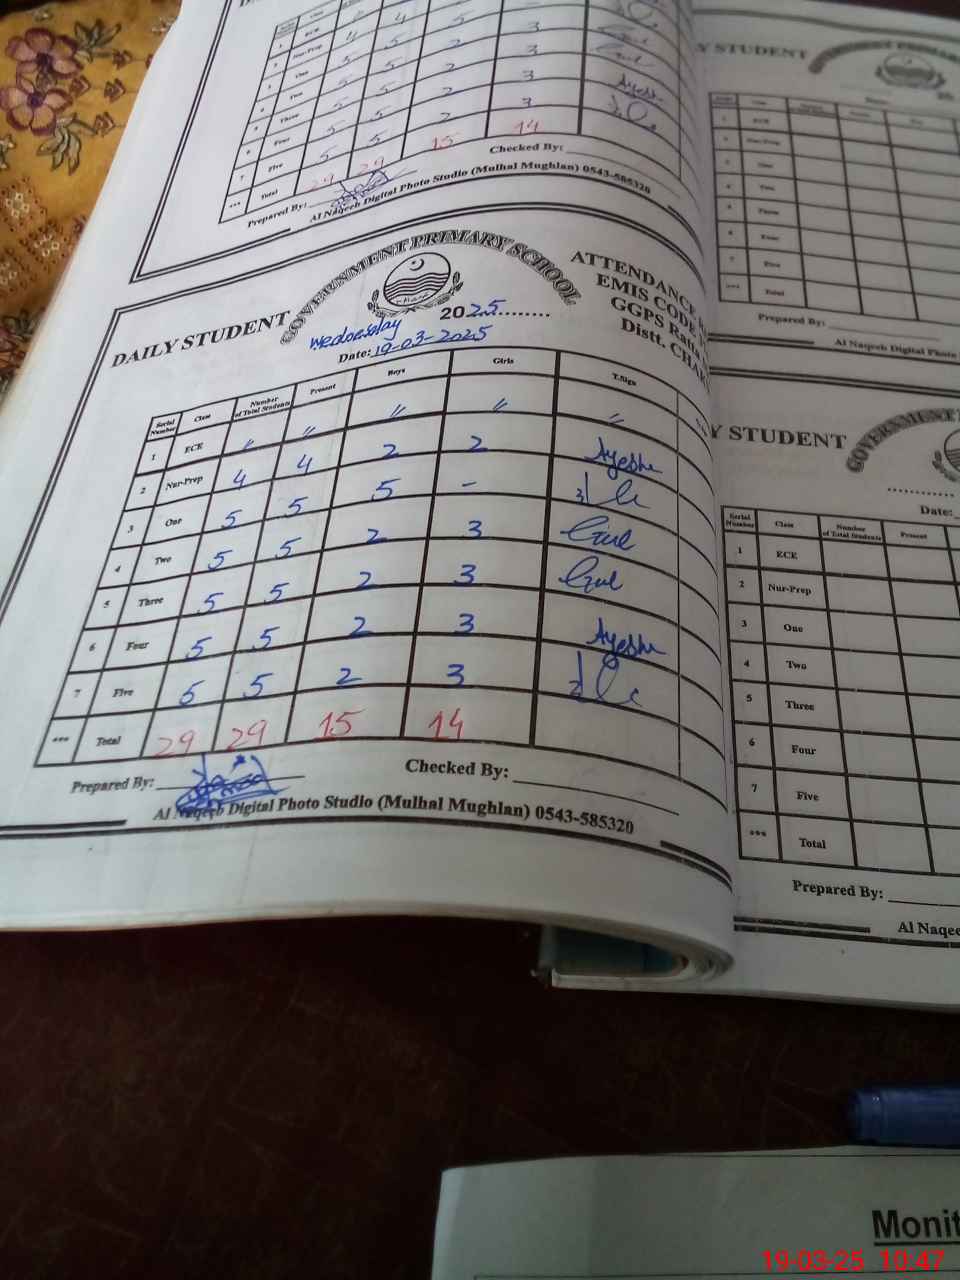 1 ECE
2 Nur-Prep 4 5 2 3
3 One 5 5 2 3
4 Two 5 5 2 3
5 Three 5 5 2 3 Ayesha
6 Four 5 5 2 3
7 Five 5 5
*** Total 29 29 15 14
Prepared By: Checked By:
Al Naqeeb Digital Photo Studio (Mulhal Mughlan) 0543-585320
DAILY STUDENT
GOVERNMENT PRIMARY SCHOOL
ATTENDANCE
EMIS CODE
GGPS Ratta
Distt. CHAK
2025
Wednesday
Date: 19-03-2025
Serial Number Class Number of Total Students Present Boys Girls T.Sign
1 ECE " " " " "
2 Nur-Prep 4 4 2 2 Ayesha
3 One 5 5 5 -
4 Two 5 5 2 3 Gul
5 Three 5 5 2 3 Gul
6 Four 5 5 2 3 Ayesha
7 Five 5 5 2 3
*** Total 29 29 15 14
Prepared By: Checked By:
Al Naqeeb Digital Photo Studio (Mulhal Mughlan) 0543-585320
Y STUDENT
GOVERNMENT PRIMARY
ECE
Two
Three
Four
Five
*** Total
Prepared By:
Al Naqeeb Digital Photo
Y STUDENT
GOVERNMENT
Date:
Serial Number Class Number of Total Students Present
1 ECE
2 Nur-Prep
3 One
4 Two
5 Three
6 Four
7 Five
*** Total
Prepared By:
Al Naqee
Monit
19-03-25 10:47